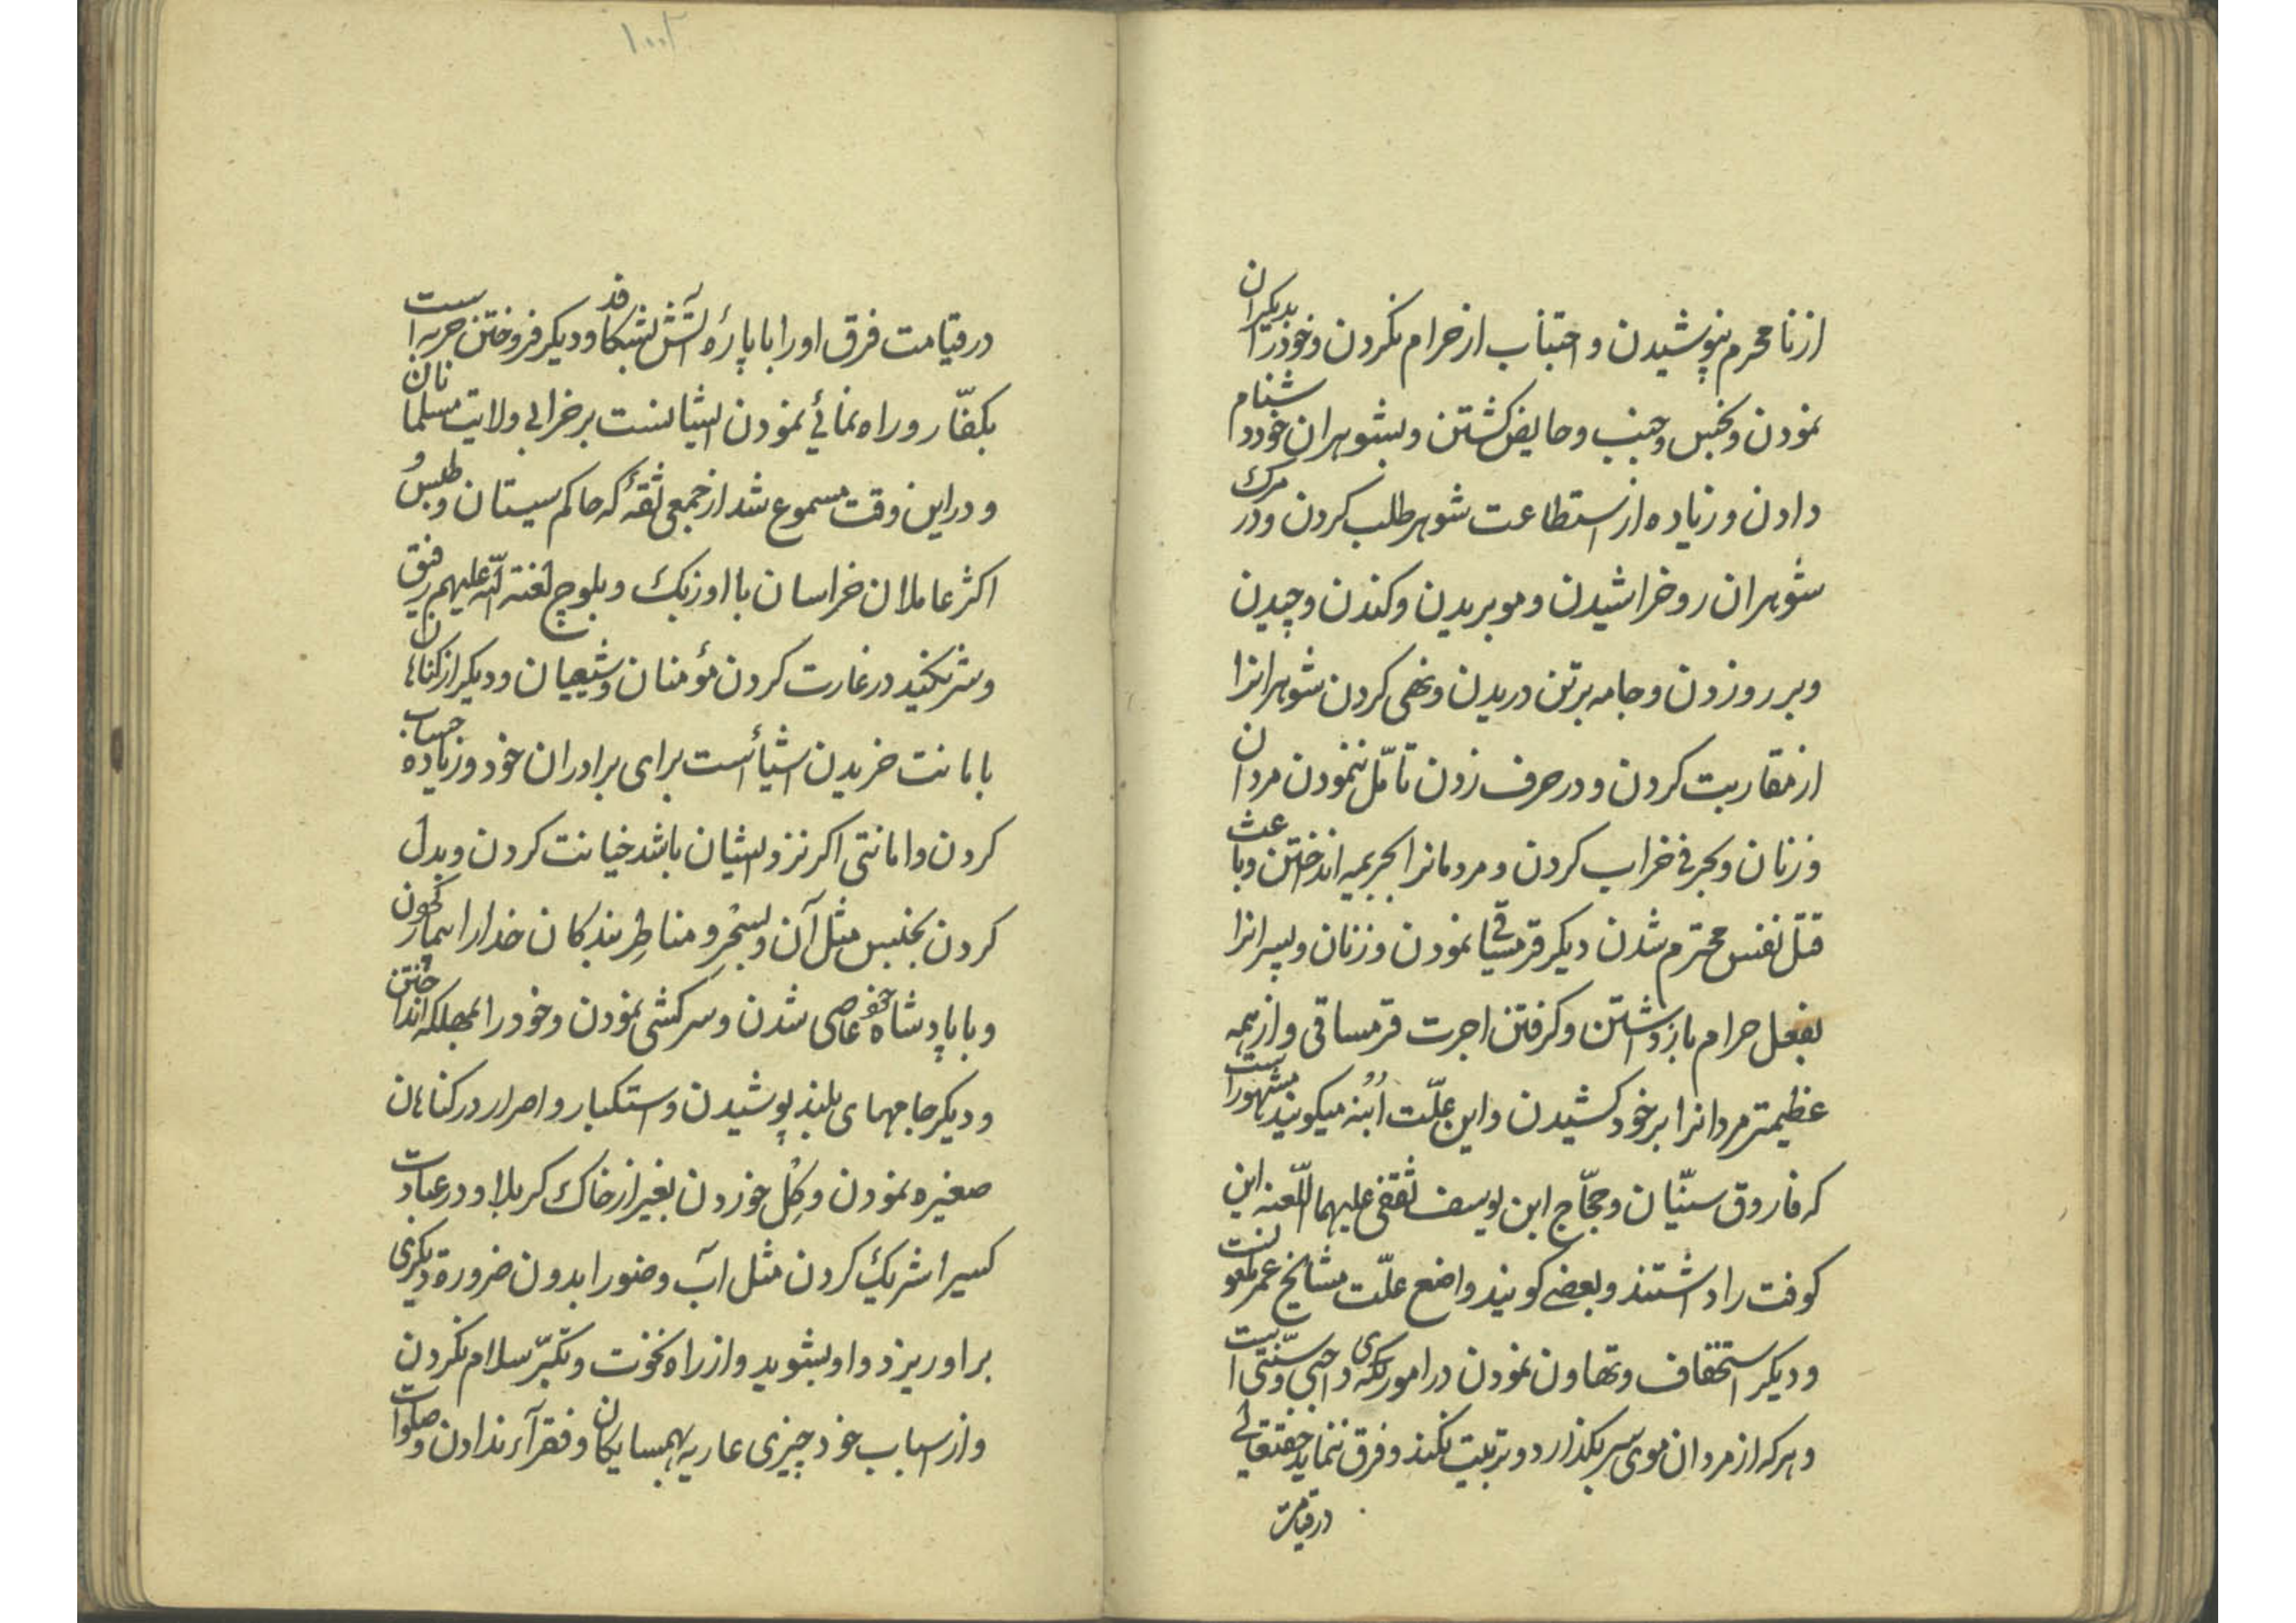 از نا محرم نپوشیدن و اجتناب از حرام نکردن و خود را بدیکران
نمودن و نجس و جنب و حایض کشتن و بشوهران خود دشنام
دادن و زیاده از استطاعت شوهر طلب کردن و در مرک
شوهران رو خراشیدن و مو بریدن و کندن و چیدن
و بر رو زدن و جامه بر تن دریدن و نهی کردن شوهرانرا
از مقاربت کردن و در حرف زدن تامّل ننمودن مردان
و زنان و بحرفی خراب کردن و مردمانرا بجریمه انداختن و باعث
قتل نفس محترم شدن دیکر قرمساقی نمودن و زنان و پسرانرا
بفعل حرام بازداشتن و کرفتن اجرت قرمساقی و از همه
عظیمتر مردانرا بر خود کشیدن و این علّت اُبنه میکویند مشهور است
که فاروق سنّیان و حجّاج ابن یوسف ثقفی علیهما اللّعنه این
کوفت را داشتند و بعضی کویند واضع علّت مشایخ عمر ملعونست
و دیکر استخفاف و تهاون نمودن در اموریکه واجبی و سنّتی است
و هر که از مردان موی سر بکذارد و تربیت نکند و فرق ننماید حقتعالی
در قیامت
۱۰۰
در قیامت فرق او را با پارهٔ آتش بشکافد و دیکر فروختن حربه است
بکفّار و راه نمائی نمودن ایشانست بر خرابی ولایت مسلمانان
و در این وقت مسموع شد از جمعی ثقه که حاکم سیستان و طبس و
اکثر عاملان خراسان با اوزبک و بلوچ لعنة اللّه علیهم رفیق
و شریکند در غارت کردن مؤمنان و شیعیان و دیکر از کناهان
بامانت خریدن اشیأست برای برادران خود و زیاده حساب
کردن و امانتی اکر نزد ایشان باشد خیانت کردن و بدل
کردن بجنس مثل آن و بسخر و مناطر بندکان خدا را
و با پادشاه خود عاصی شدن و سرکشی نمودن و خود را بمهلکه انداختن
و دیکر جامهای بلند پوشیدن و استکبار و اصرار در کناهان
صغیره نمودن و کِل خوردن بغیر از خاک کربلا و در عبادت
کسیرا شریک کردن مثل آب وضو را بدون ضرورة دیکری
بر او ریزد و او بشوید و از راه نخوت و تکبّر سلام نکردن
و از اسباب خود چیزی عاریه بهمسایکان و فقرآء ندادن و صلوات